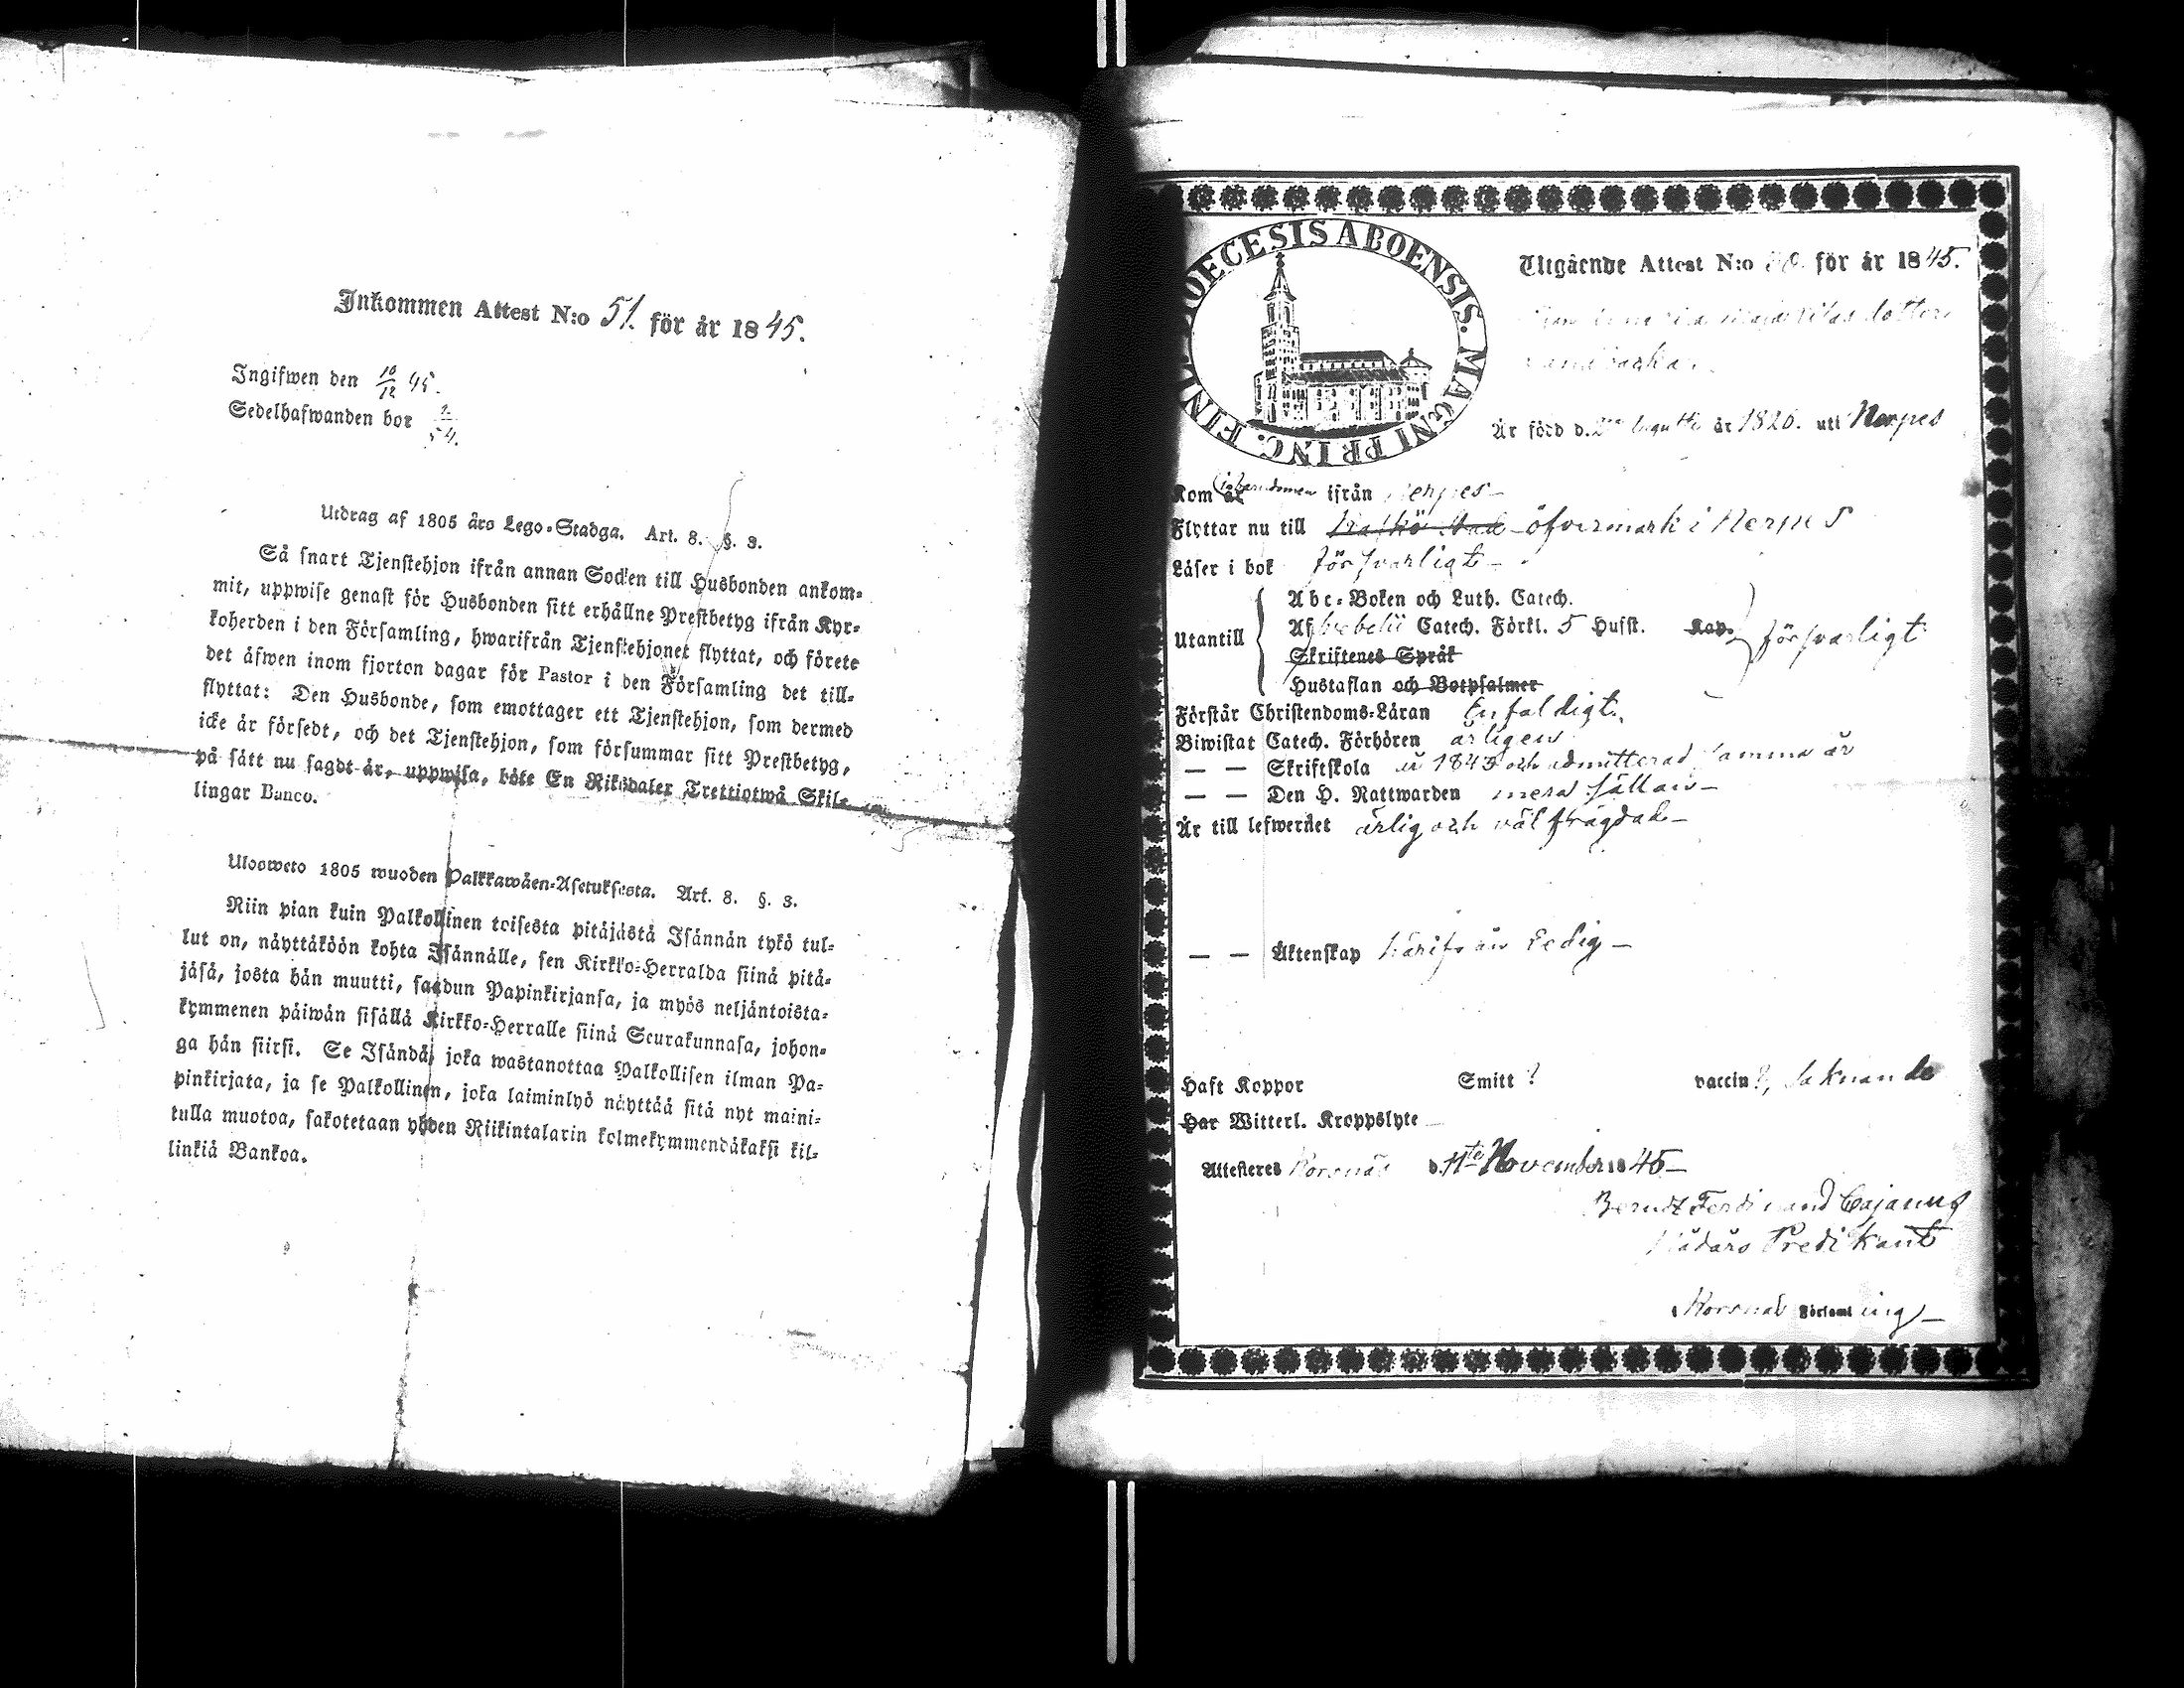 Inkommen Attest N:o 51. för år 1845.
Ingifwen den 10/12 45.
Sedelhafwanden bor
Utdrag af 1805 års Lego-Stadga. Art. 8. §. 3.
Så snart Tjenstehjon ifrån annan Socken till Husbonden ankom-
mit, uppwise genast för Husbonden sitt erhållne Prestbetyg ifrån Kyr-
koherden i den Församling, hwarifrån Tjenstehjonet flyttat, och förete
det äfwen inom fjorton dagar för Pastor i den Församling det till-
flyttat: Den Husbonde, som emottager ett Tjenstehjon, som dermed
icke är försedt, och det Tjenstehjon, som försummar sitt Prestbetyg,
på sätt nu sagdt är, uppwisa, böte En Riksdaler Trettiotwå Skil-
lingar Banco.
Ulosweto 1805 wuoden Palkkawäen-Asetuksesta. Art. 8. §. 3.
Niin pian kuin Palkollinen toisesta pitäjästä Isännän tykö tul-
lut on, näyttäköön kohta Isännälle, sen Kirkko-Herralda siinä pitä-
jäsä, josta hän muutti, saadun Papinkirjansa, ja myös neljäntoista-
kymmenen päiwän sisällä Kirkko-Herralle siinä Seurakunnasa, johon-
ga hän siirsi. Se Isändä, joka wastanottaa Palkollisen ilman Pa-
pinkirjata, ja se Palkollinen, joka laiminlyö näyttää sitä nyt maini-
tulla muotoa, sakotetaan yhden Riikintalarin kolmekymmendäkaksi kil-
linkiä Bankoa.
DIOECESIS ABOENSIS. MAGNI PRINC. FINL.
Utgående Attest N:o för år 1845.
dotter
Är född d. år 1826. uti Nerpes
Kom år ifrån Nerpes
Flyttar nu till öfvermark i Nerpes
Läser i bok försvarligt
Utantill
Abc-Boken och Luth. Catech.
Af Svebelii Catech. Förkl. 5 Hufst. Kap. försvarligt
Skriftenes Språk
Hustaflan och Botpsalmer
Förstår Christendoms-Läran Enfaldigt
Biwistat Catech. Förhören årligen
— — Skriftskola år 1843 och admitterad samma år
— — Den H. Nattwarden mera sällan
Är till lefwernet ärlig och väl frägdad
— — Äktenskap härifrån ledig
Haft Koppor Smitt ? vaccin ?, Saknande
Har Witterl. Kroppslyte
Attesteres Korsnäs d. 11te November 1845
Berndt Ferdinand Cajanus
Nådårs Predikant
Korsnäs Församling